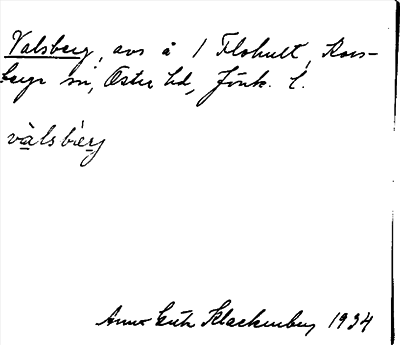 Valsberg, avs å 1 Flohult, Kors-
berga sn, Östra hd, Jönk. l.
vàlsbærj
Klackenberg 1934